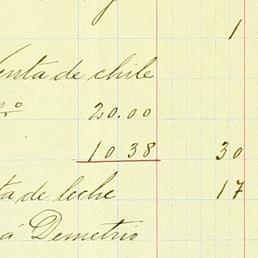 1
enta de chile
s.º 20.00
10 38 30
ta de leche 17
á Demetrio